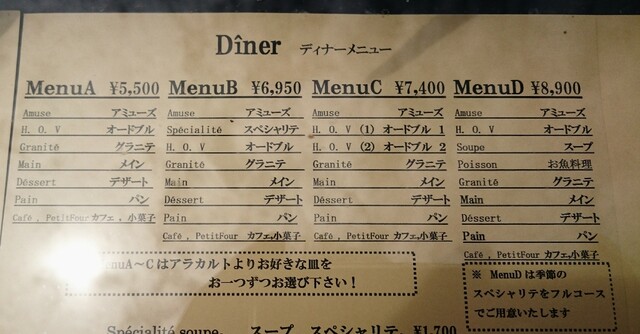 Dîner ディナーメニュー
MenuA ¥5,500
Amuse アミューズ
H. O. V オードブル
Granité グラニテ
Main メイン
Déssert デザート
Pain パン
Café , PetitFour カフェ , 小菓子
MenuB ¥6,950
Amuse アミューズ
Spécialité スペシャリテ
H. O. V オードブル
Granité グラニテ
Main メイン
Déssert デザート
Pain パン
Café , PetitFour カフェ,小菓子
MenuC ¥7,400
Amuse アミューズ
H. O. V (1) オードブル 1
H. O. V (2) オードブル 2
Granité グラニテ
Main メイン
Déssert デザート
Pain パン
Café , PetitFour カフェ,小菓子
MenuD ¥8,900
Amuse アミューズ
H. O. V オードブル
Soupe スープ
Poisson お魚料理
Granité グラニテ
Main メイン
Déssert デザート
Pain パン
Café , PetitFour カフェ,小菓子
enuA～Cはアラカルトよりお好きな皿を
お一つずつお選び下さい！
※ MenuDは季節の
スペシャリテをフルコース
でご用意いたします
Spécialité soupe. スープ スペシャリテ. ¥1,700